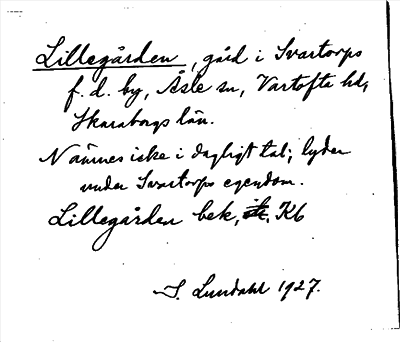 Lillegården, gård i Svartorps
f. d. by, Åsle sn, Vartofta hd,
Skaraborgs län.
Nämnes icke i dagligt tal; lyder
under Svartorps egendom.
Lillegården bek, Kb
S. Lundahl 1927.